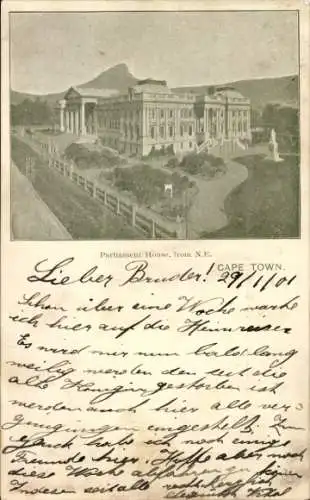 Parliament House, from N.E.
CAPE TOWN.
Lieber Bruder! 29/1/01
Schon über eine Woche warte
ich hier auf die Heimreise
Es wird mir nun bald lang
weilig werden den seit die
alte Königin gestorben ist
werden auch hier alle ver
gnügungen eingestellt. Zum
Glück habe ich noch einige
Freunde hier. Hoffe aber noch
diese Woche abfahren zu
Indessen sei